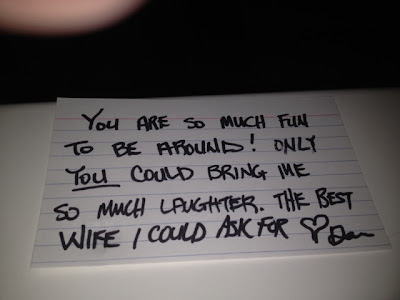 YOU ARE SO MUCH FUN
TO BE AROUND! ONLY
YOU COULD BRING ME
SO MUCH LAUGHTER. THE BEST
WIFE I COULD ASK FOR ♡